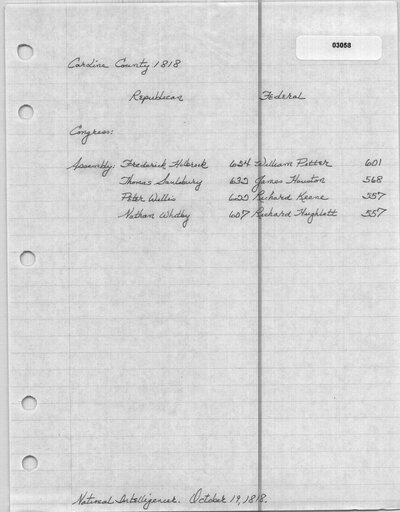 03058
Caroline County 1818
Republican Federal
Congress:
Assembly: Frederick Holbrook 634 William Potter 601
Thomas Saulsbury 632 James Houston 568
Peter Willis 622 Richard Keene 557
Nathan Whitby 607 Richard Hughlett 557
National Intelligencer. October 19, 1818.